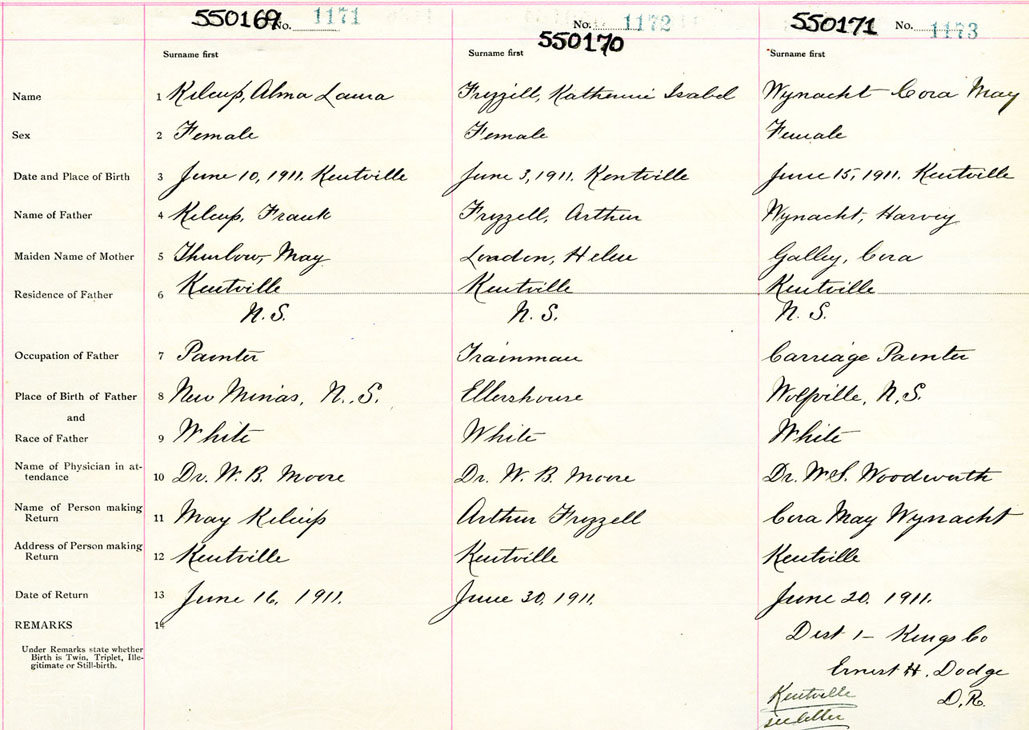 550169 No. 1171 No. 1172 550171 No. 1173
550170
Surname first Surname first Surname first
Name 1 Kelcup, Alma Laura Frizzell, Katherine Isabel Wynacht Cora May
Sex 2 Female Female Female
Date and Place of Birth 3 June 10, 1911. Kentville June 3, 1911. Kentville June 15, 1911. Kentville
Name of Father 4 Kelcup, Frank Frizzell, Arthur Wynacht, Harvey
Maiden Name of Mother 5 Thurlow, May Loadon, Helen Galley, Cora
Residence of Father 6 Kentville Kentville Kentville
N.S. N.S. N.S.
Occupation of Father 7 Painter Trainman Carriage Painter
Place of Birth of Father 8 New Minas, N.S. Ellershouse Wolfville, N.S.
and
Race of Father 9 White White White
Name of Physician in at-
tendance 10 Dr. W. B. Moore Dr. W. B. Moore Dr. W.S. Woodworth
Name of Person making
Return 11 May Kelcup Arthur Frizzell Cora May Wynacht
Address of Person making
Return 12 Kentville Kentville Kentville
Date of Return 13 June 16, 1911. June 30, 1911. June 20. 1911.
REMARKS 14
Under Remarks state whether
Birth is Twin, Triplet, Ille-
gitimate or Still-birth.
Dist 1 - Kings Co
Ernest H. Dodge
Kentville D.R.
see letter